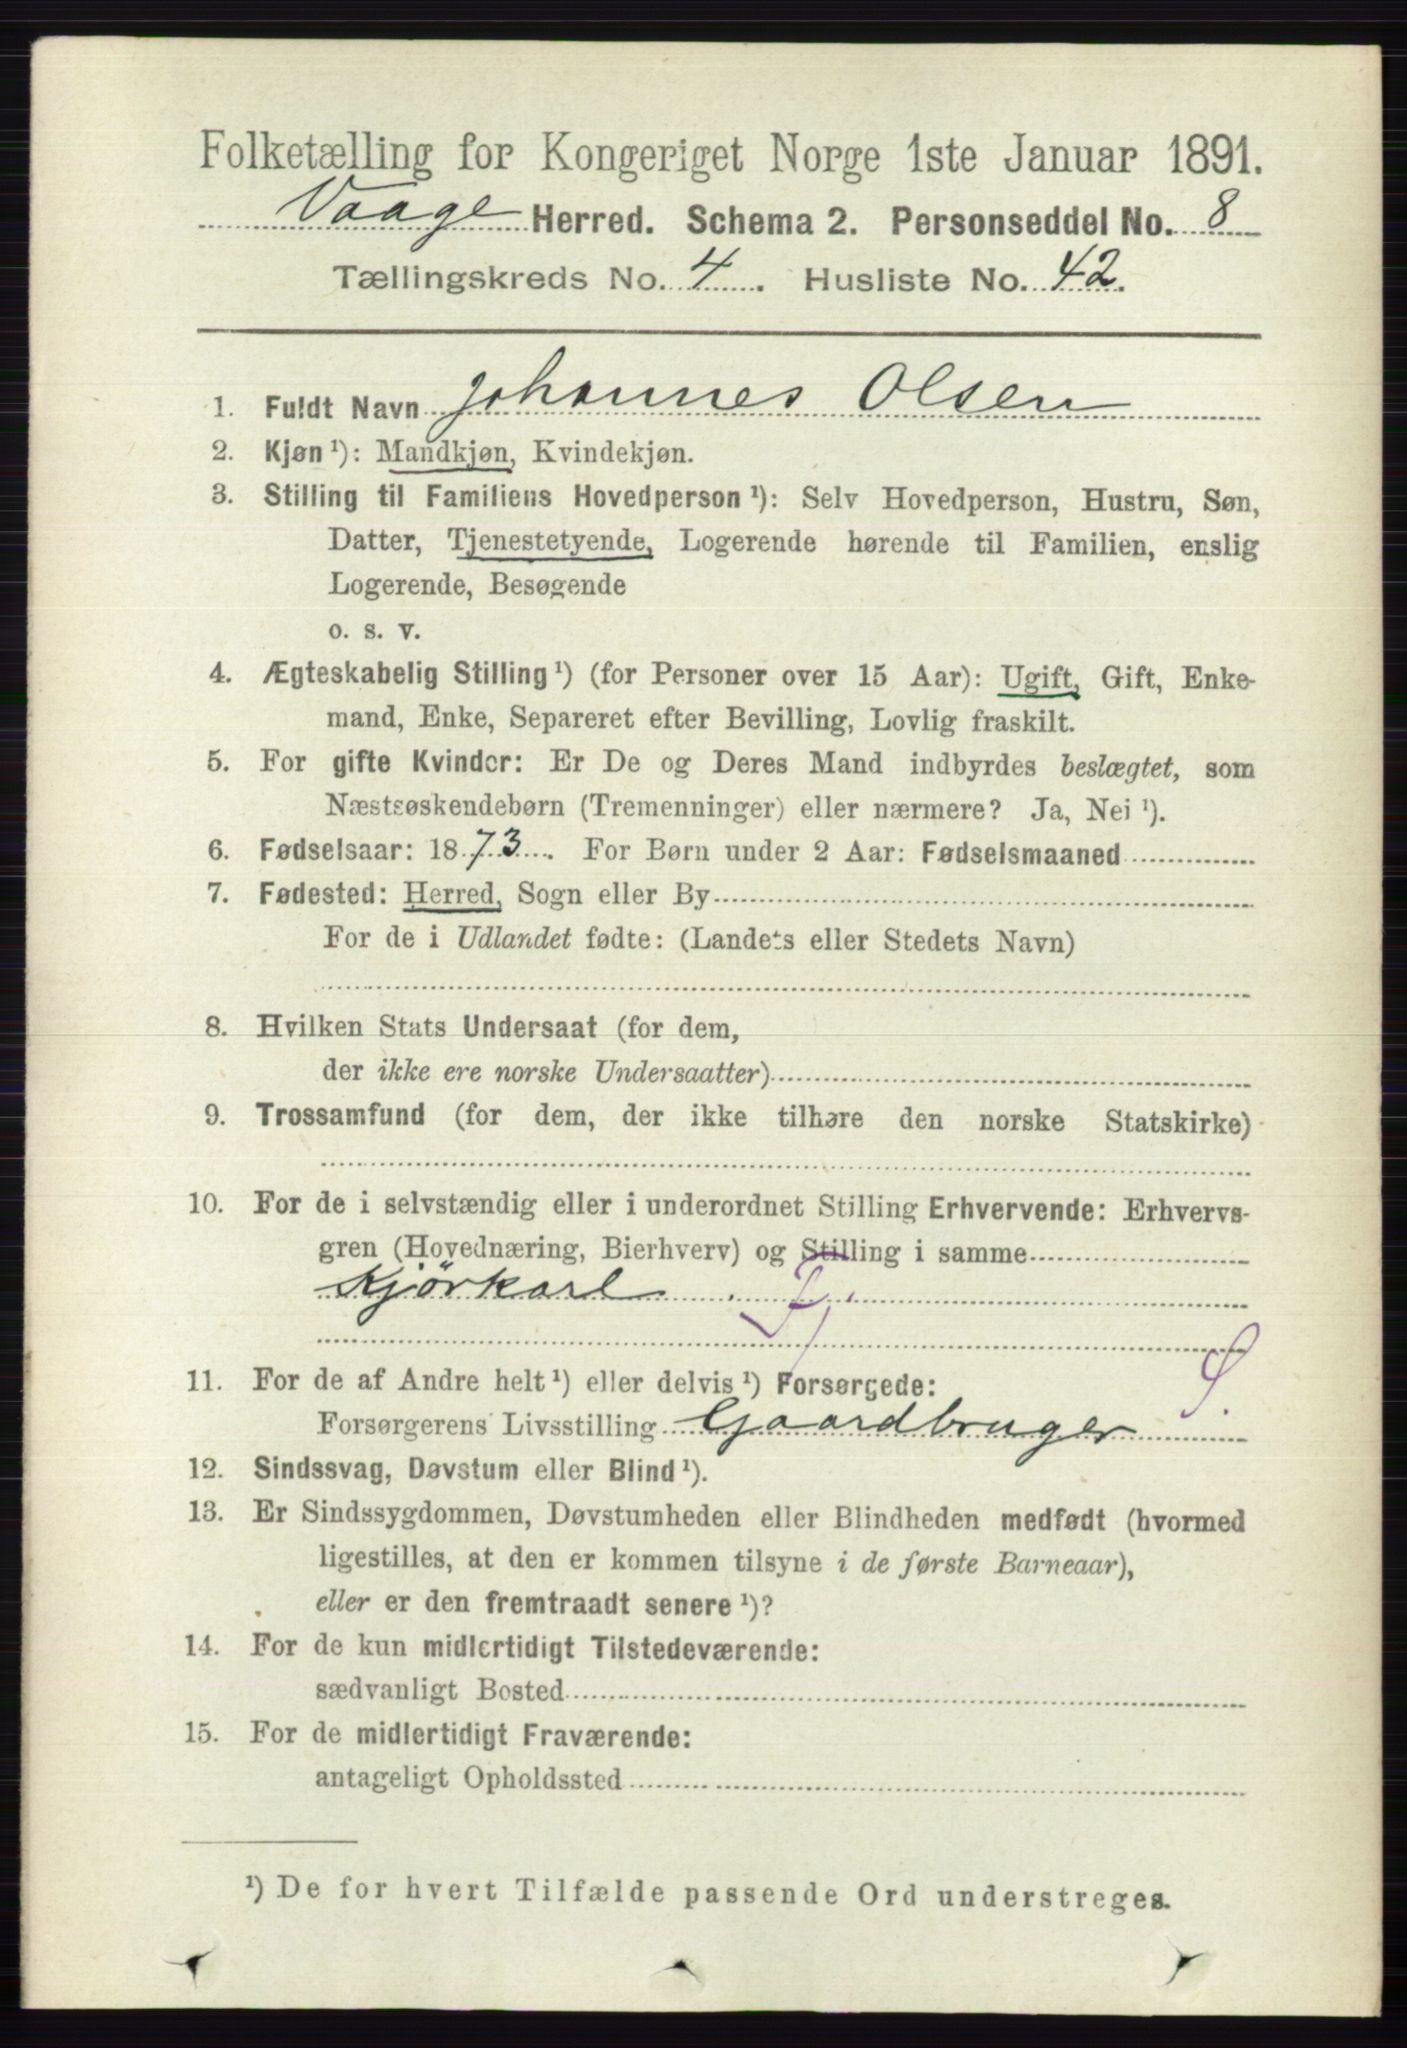 Folketælling for Kongeriget Norge 1ste Januar 1891.
Vaage Herred. Schema 2. Personseddel No. 8
Tællingskreds No. 4. Husliste No. 42.
1. Fuldt Navn Johannes Olsen
2. Kjøn ¹): Mandkjøn, Kvindekjøn.
3. Stilling til Familiens Hovedperson ¹): Selv Hovedperson, Hustru, Søn,
Datter, Tjenestetyende, Logerende hørende til Familien, enslig
Logerende, Besøgende
o. s. v.
4. Ægteskabelig Stilling ¹) (for Personer over 15 Aar): Ugift, Gift, Enke-
mand, Enke, Separeret efter Bevilling, Lovlig fraskilt.
5. For gifte Kvinder: Er De og Deres Mand indbyrdes beslægtet, som
Næstsøskendebørn (Tremenninger) eller nærmere? Ja, Nei ¹).
6. Fødselsaar: 1873. For Børn under 2 Aar: Fødselsmaaned
7. Fødested: Herred, Sogn eller By
For de i Udlandet fødte: (Landets eller Stedets Navn)
8. Hvilken Stats Undersaat (for dem,
der ikke ere norske Undersaatter)
9. Trossamfund (for dem, der ikke tilhøre den norske Statskirke)
10. For de i selvstændig eller i underordnet Stilling Erhvervende: Erhvervs-
gren (Hovednæring, Bierhverv) og Stilling i samme
Kjørkarl
11. For de af Andre helt ¹) eller delvis ¹) Forsørgede:
Forsørgerens Livsstilling Gaardbruger
12. Sindssvag, Døvstum eller Blind ¹).
13. Er Sindssygdommen, Døvstumheden eller Blindheden medfødt (hvormed
ligestilles, at den er kommen tilsyne i de første Barneaar),
eller er den fremtraadt senere ¹)?
14. For de kun midlertidigt Tilstedeværende:
sædvanligt Bosted
15. For de midlertidigt Fraværende:
antageligt Opholdssted
¹) De for hvert Tilfælde passende Ord understreges.